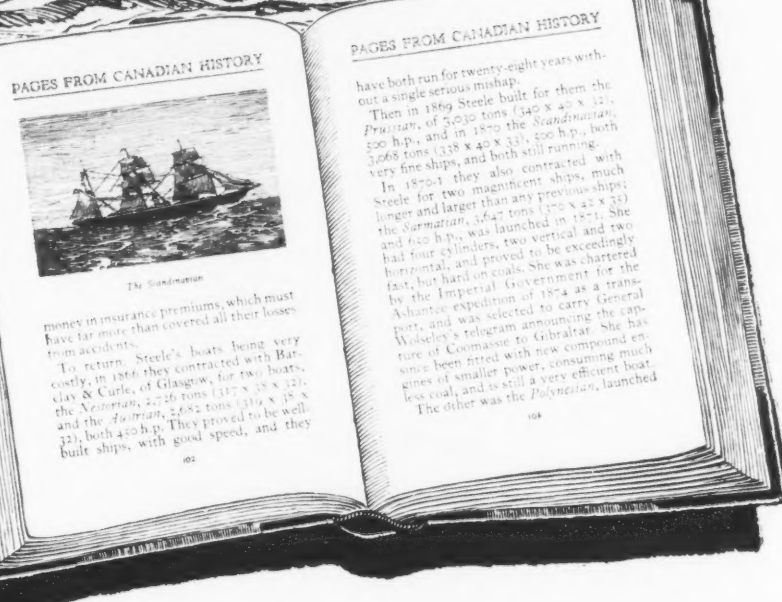 PAGES FROM CANADIAN HISTORY
The Scandinavian
money in insurance premiums, which must
have far more than covered all their losses
from accidents.
To return. Steele's boats being very
costly, in 1866 they contracted with Bar-
clay & Curle, of Glasgow, for two boats,
the Nestorian, 2,726 tons (317 x 38 x 32),
and the Austrian, 2,682 tons (319 x 38 x
32), both 450 h.p. They proved to be well-
built ships, with good speed, and they
102
PAGES FROM CANADIAN HISTORY
have both run for twenty-eight years with-
out a single serious mishap.
Then in 1869 Steele built for them the
Prussian, of 3,030 tons (340 x 40 x 32),
500 h.p., and in 1870 the Scandinavian,
3,068 tons (338 x 40 x 33), 500 h.p., both
very fine ships, and both still running.
In 1870-1 they also contracted with
Steele for two magnificent ships, much
longer and larger than any previous ships;
the Sarmatian, 3,647 tons (370 x 42 x 35)
and 600 h.p., was launched in 1871. She
had four cylinders, two vertical and two
horizontal, and proved to be exceedingly
fast, but hard on coals. She was chartered
by the Imperial Government for the
Ashantee expedition of 1874 as a trans-
port, and was selected to carry General
Wolseley's telegram announcing the cap-
ture of Coomassie to Gibraltar. She has
since been fitted with new compound en-
gines of smaller power, consuming much
less coal, and is still a very efficient boat.
The other was the Polynesian, launched